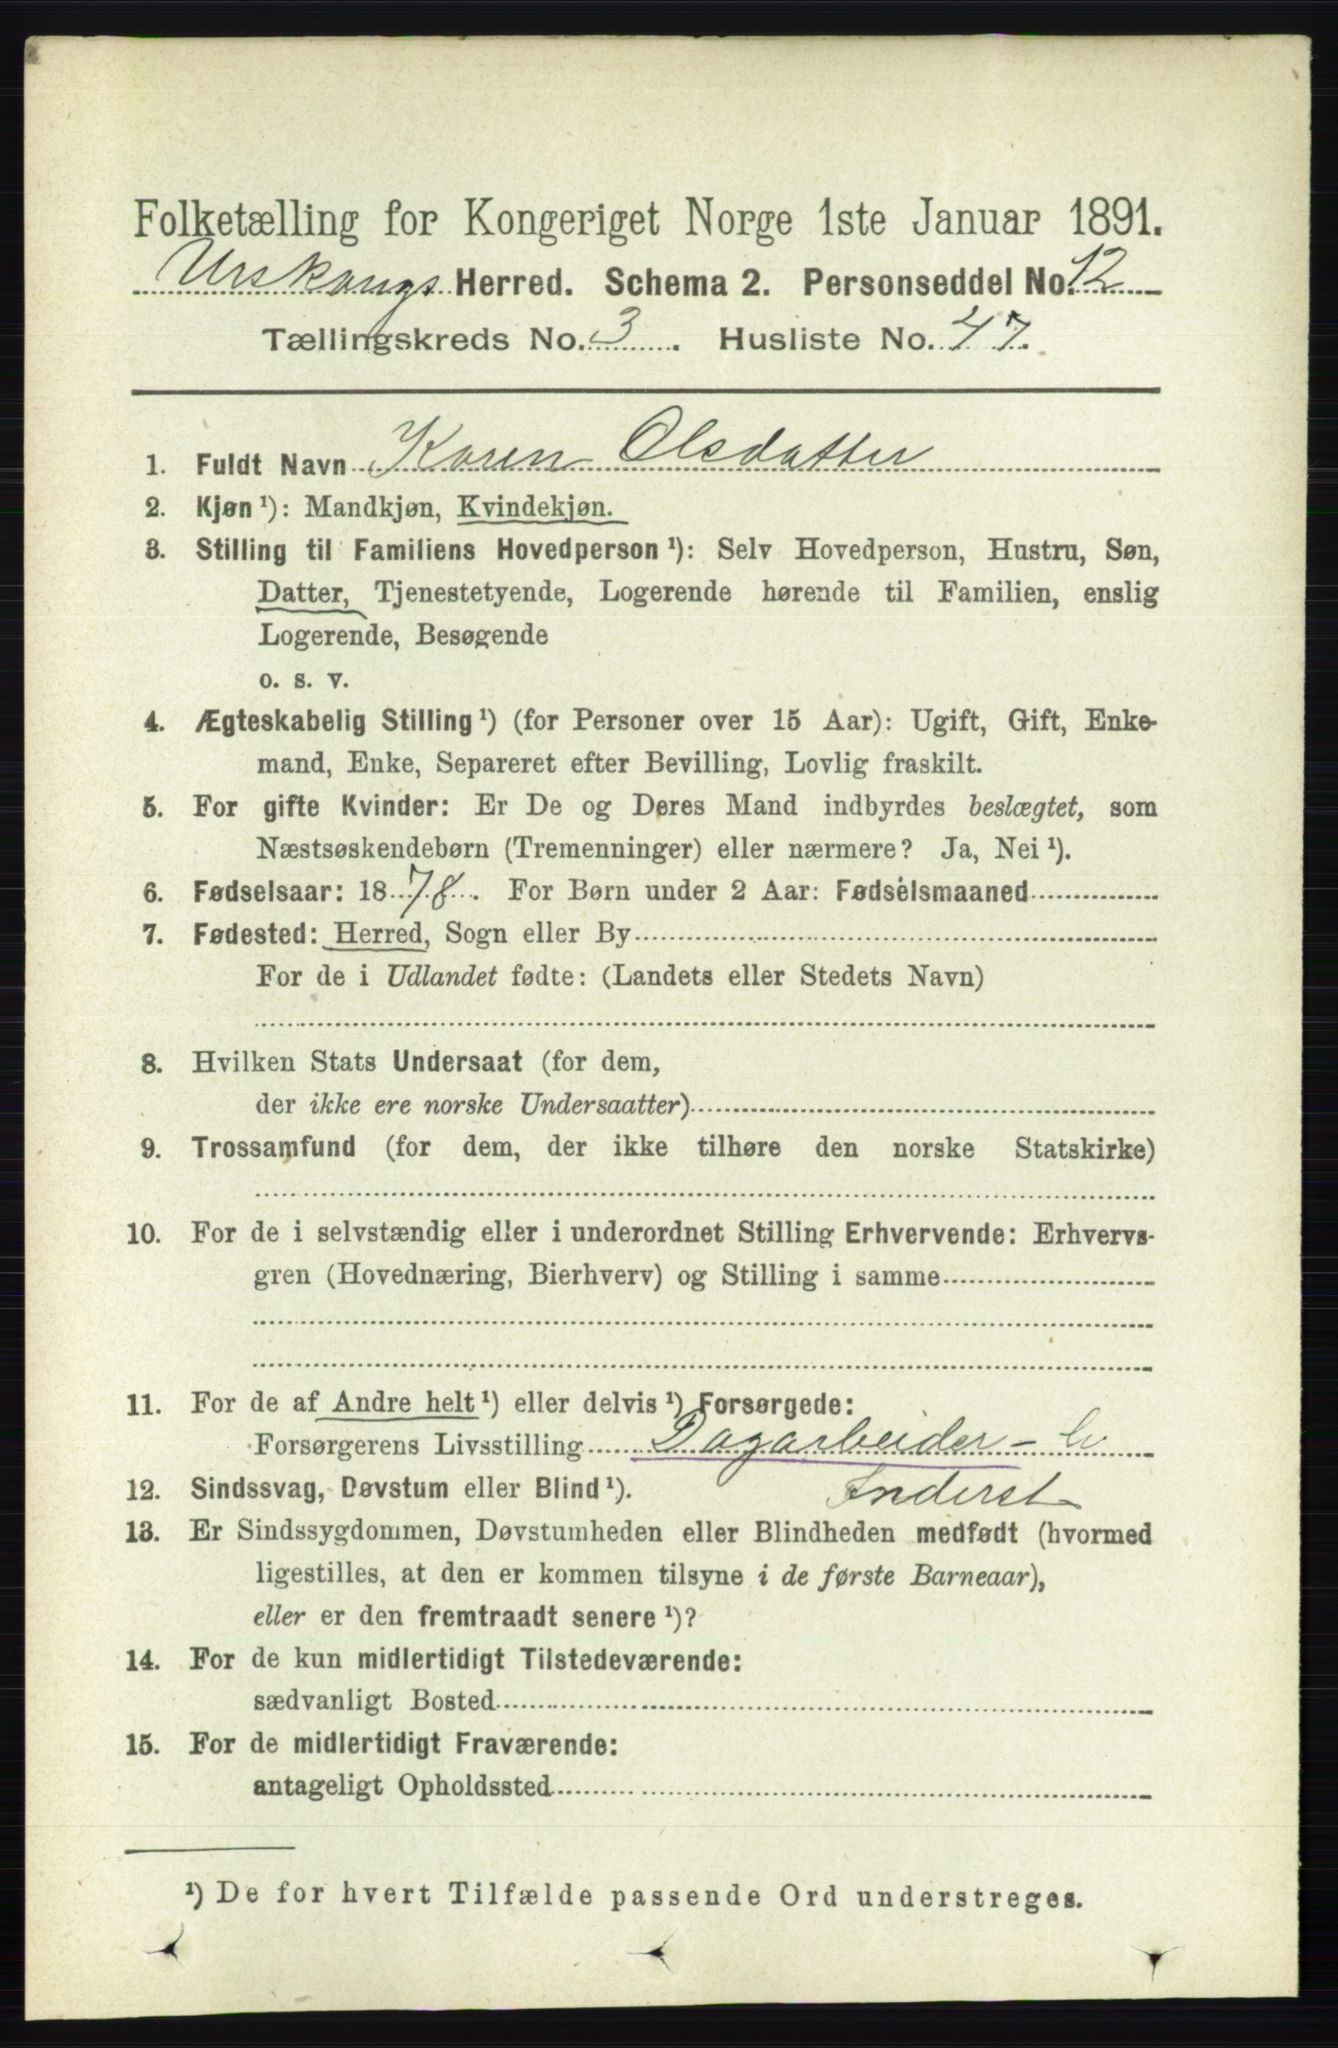 Folketælling for Kongeriget Norge 1ste Januar 1891.
Urskougs Herred. Schema 2. Personseddel No. 12
Tællingskreds No. 3. Husliste No. 47.
1. Fuldt Navn Karen Olsdatter
2. Kjøn ¹): Mandkjøn, Kvindekjøn.
3. Stilling til Familiens Hovedperson ¹): Selv Hovedperson, Hustru, Søn,
Datter, Tjenestetyende, Logerende hørende til Familien, enslig
Logerende, Besøgende
o. s. v.
4. Ægteskabelig Stilling ¹) (for Personer over 15 Aar): Ugift, Gift, Enke-
mand, Enke, Separeret efter Bevilling, Lovlig fraskilt.
5. For gifte Kvinder: Er De og Deres Mand indbyrdes beslægtet, som
Næstsøskendebørn (Tremenninger) eller nærmere? Ja, Nei ¹).
6. Fødselsaar: 1878. For Børn under 2 Aar: Fødselsmaaned
7. Fødested: Herred, Sogn eller By
For de i Udlandet fødte: (Landets eller Stedets Navn)
8. Hvilken Stats Undersaat (for dem,
der ikke ere norske Undersaatter)
9. Trossamfund (for dem, der ikke tilhøre den norske Statskirke)
10. For de i selvstændig eller i underordnet Stilling Erhvervende: Erhvervs-
gren (Hovednæring, Bierhverv) og Stilling i samme
11. For de af Andre helt ¹) eller delvis ¹) Forsørgede:
Forsørgerens Livsstilling Dagarbeider -
12. Sindssvag, Døvstum eller Blind ¹). Inderst
13. Er Sindssygdommen, Døvstumheden eller Blindheden medfødt (hvormed
ligestilles, at den er kommen tilsyne i de første Barneaar),
eller er den fremtraadt senere ¹)?
14. For de kun midlertidigt Tilstedeværende:
sædvanligt Bosted
15. For de midlertidigt Fraværende:
antageligt Opholdssted
¹) De for hvert Tilfælde passende Ord understreges.